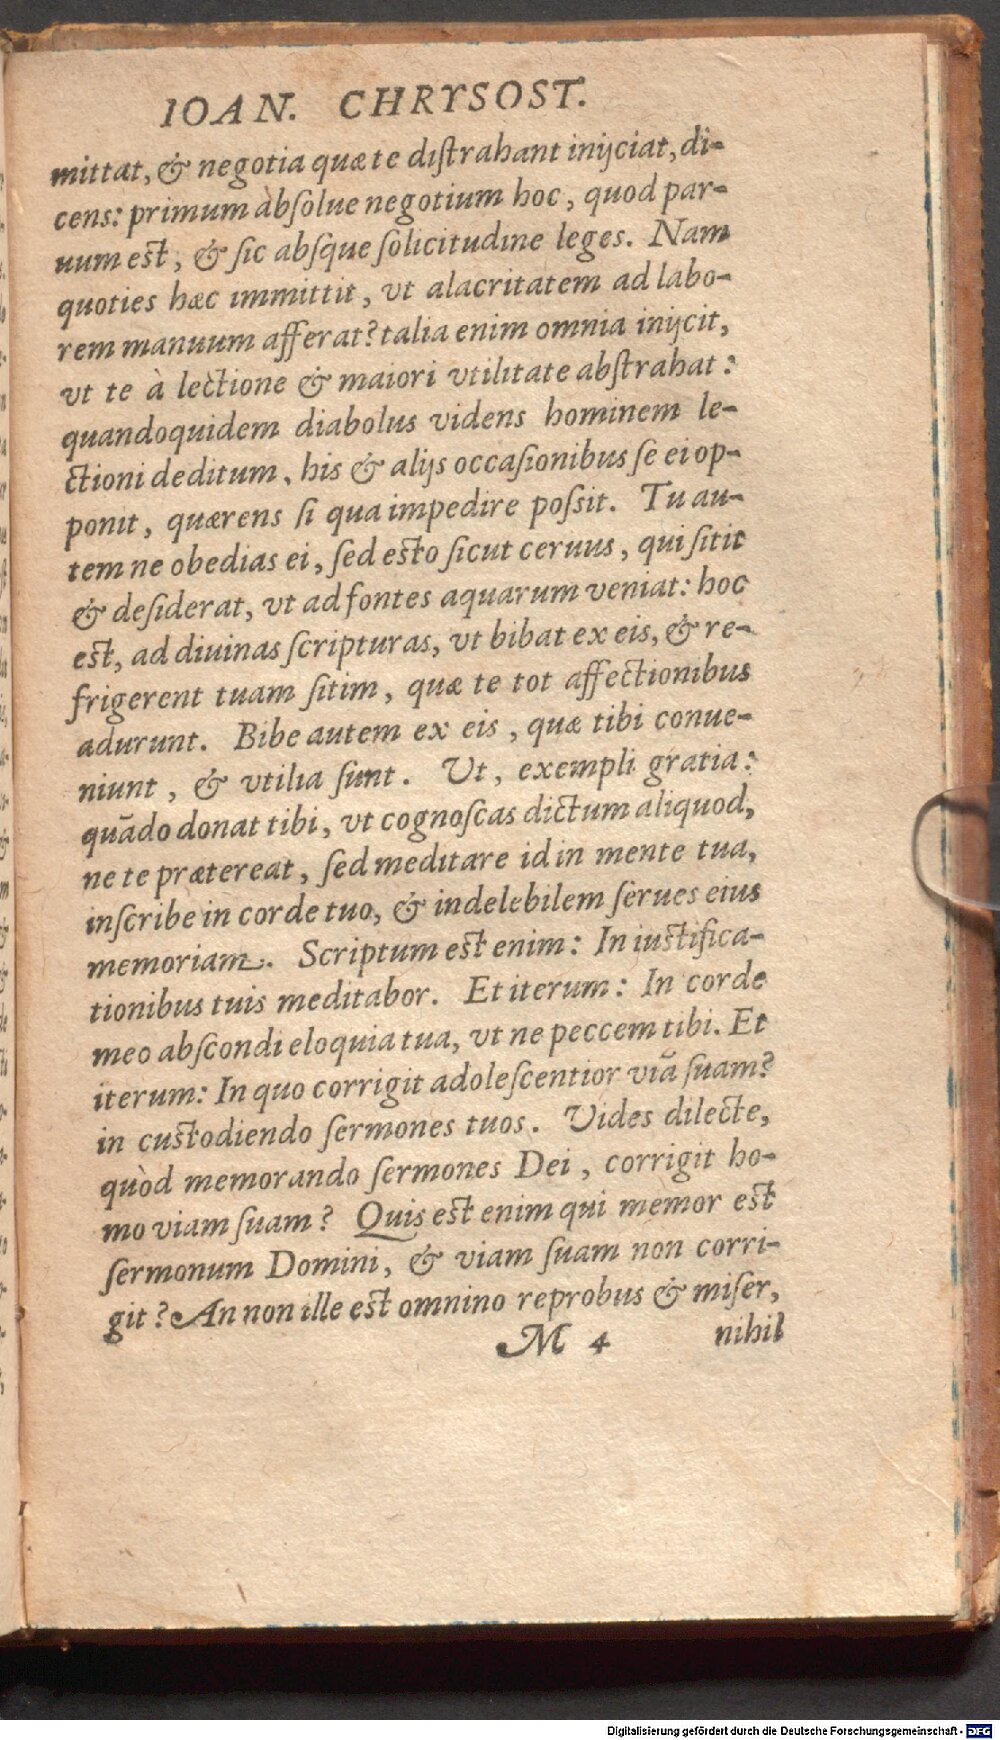 IOAN. CHRYSOST.
mittat, & negotia quæ te diſtrahant inijciat, di-
cens: primum àbſolue negotium hoc, quod par-
uum eſt, & ſic abſque ſolicitudine leges. Nam
quoties hæc immittit, vt alacritatem ad labo-
rem manuum afferat? talia enim omnia inijcit,
vt te à lectione & maiori vtilitate abſtrahat:
quandoquidem diabolus videns hominem le-
ctioni deditum, his & alijs occaſionibus ſe ei op-
ponit, quærens ſi qua impedire poſsit. Tu au-
tem ne obedias ei, ſed eſto ſicut ceruus, qui ſitit
& deſiderat, vt ad fontes aquarum veniat: hoc
eſt, ad diuinas ſcripturas, vt bibat ex eis, & re-
frigerent tuam ſitim, quæ te tot affectionibus
adurunt. Bibe autem ex eis, quæ tibi conue-
niunt, & vtilia ſunt. Ut, exempli gratia:
quādo donat tibi, vt cognoſcas dictum aliquod,
ne te prætereat, ſed meditare id in mente tua,
inſcribe in corde tuo, & indelebilem ſerues eius
memoriam. Scriptum eſt enim: In iuſtifica-
tionibus tuis meditabor. Et iterum: In corde
meo abſcondi eloquia tua, vt ne peccem tibi. Et
iterum: In quo corrigit adoleſcentior viā ſuam?
in cuſtodiendo ſermones tuos. Vides dilecte,
quòd memorando ſermones Dei, corrigit ho-
mo viam ſuam? Quis eſt enim qui memor eſt
ſermonum Domini, & viam ſuam non corri-
git? An non ille eſt omnino reprobus & miſer,
M 4 nihil
Digitalisierung gefördert durch die Deutsche Forschungsgemeinschaft - DFG